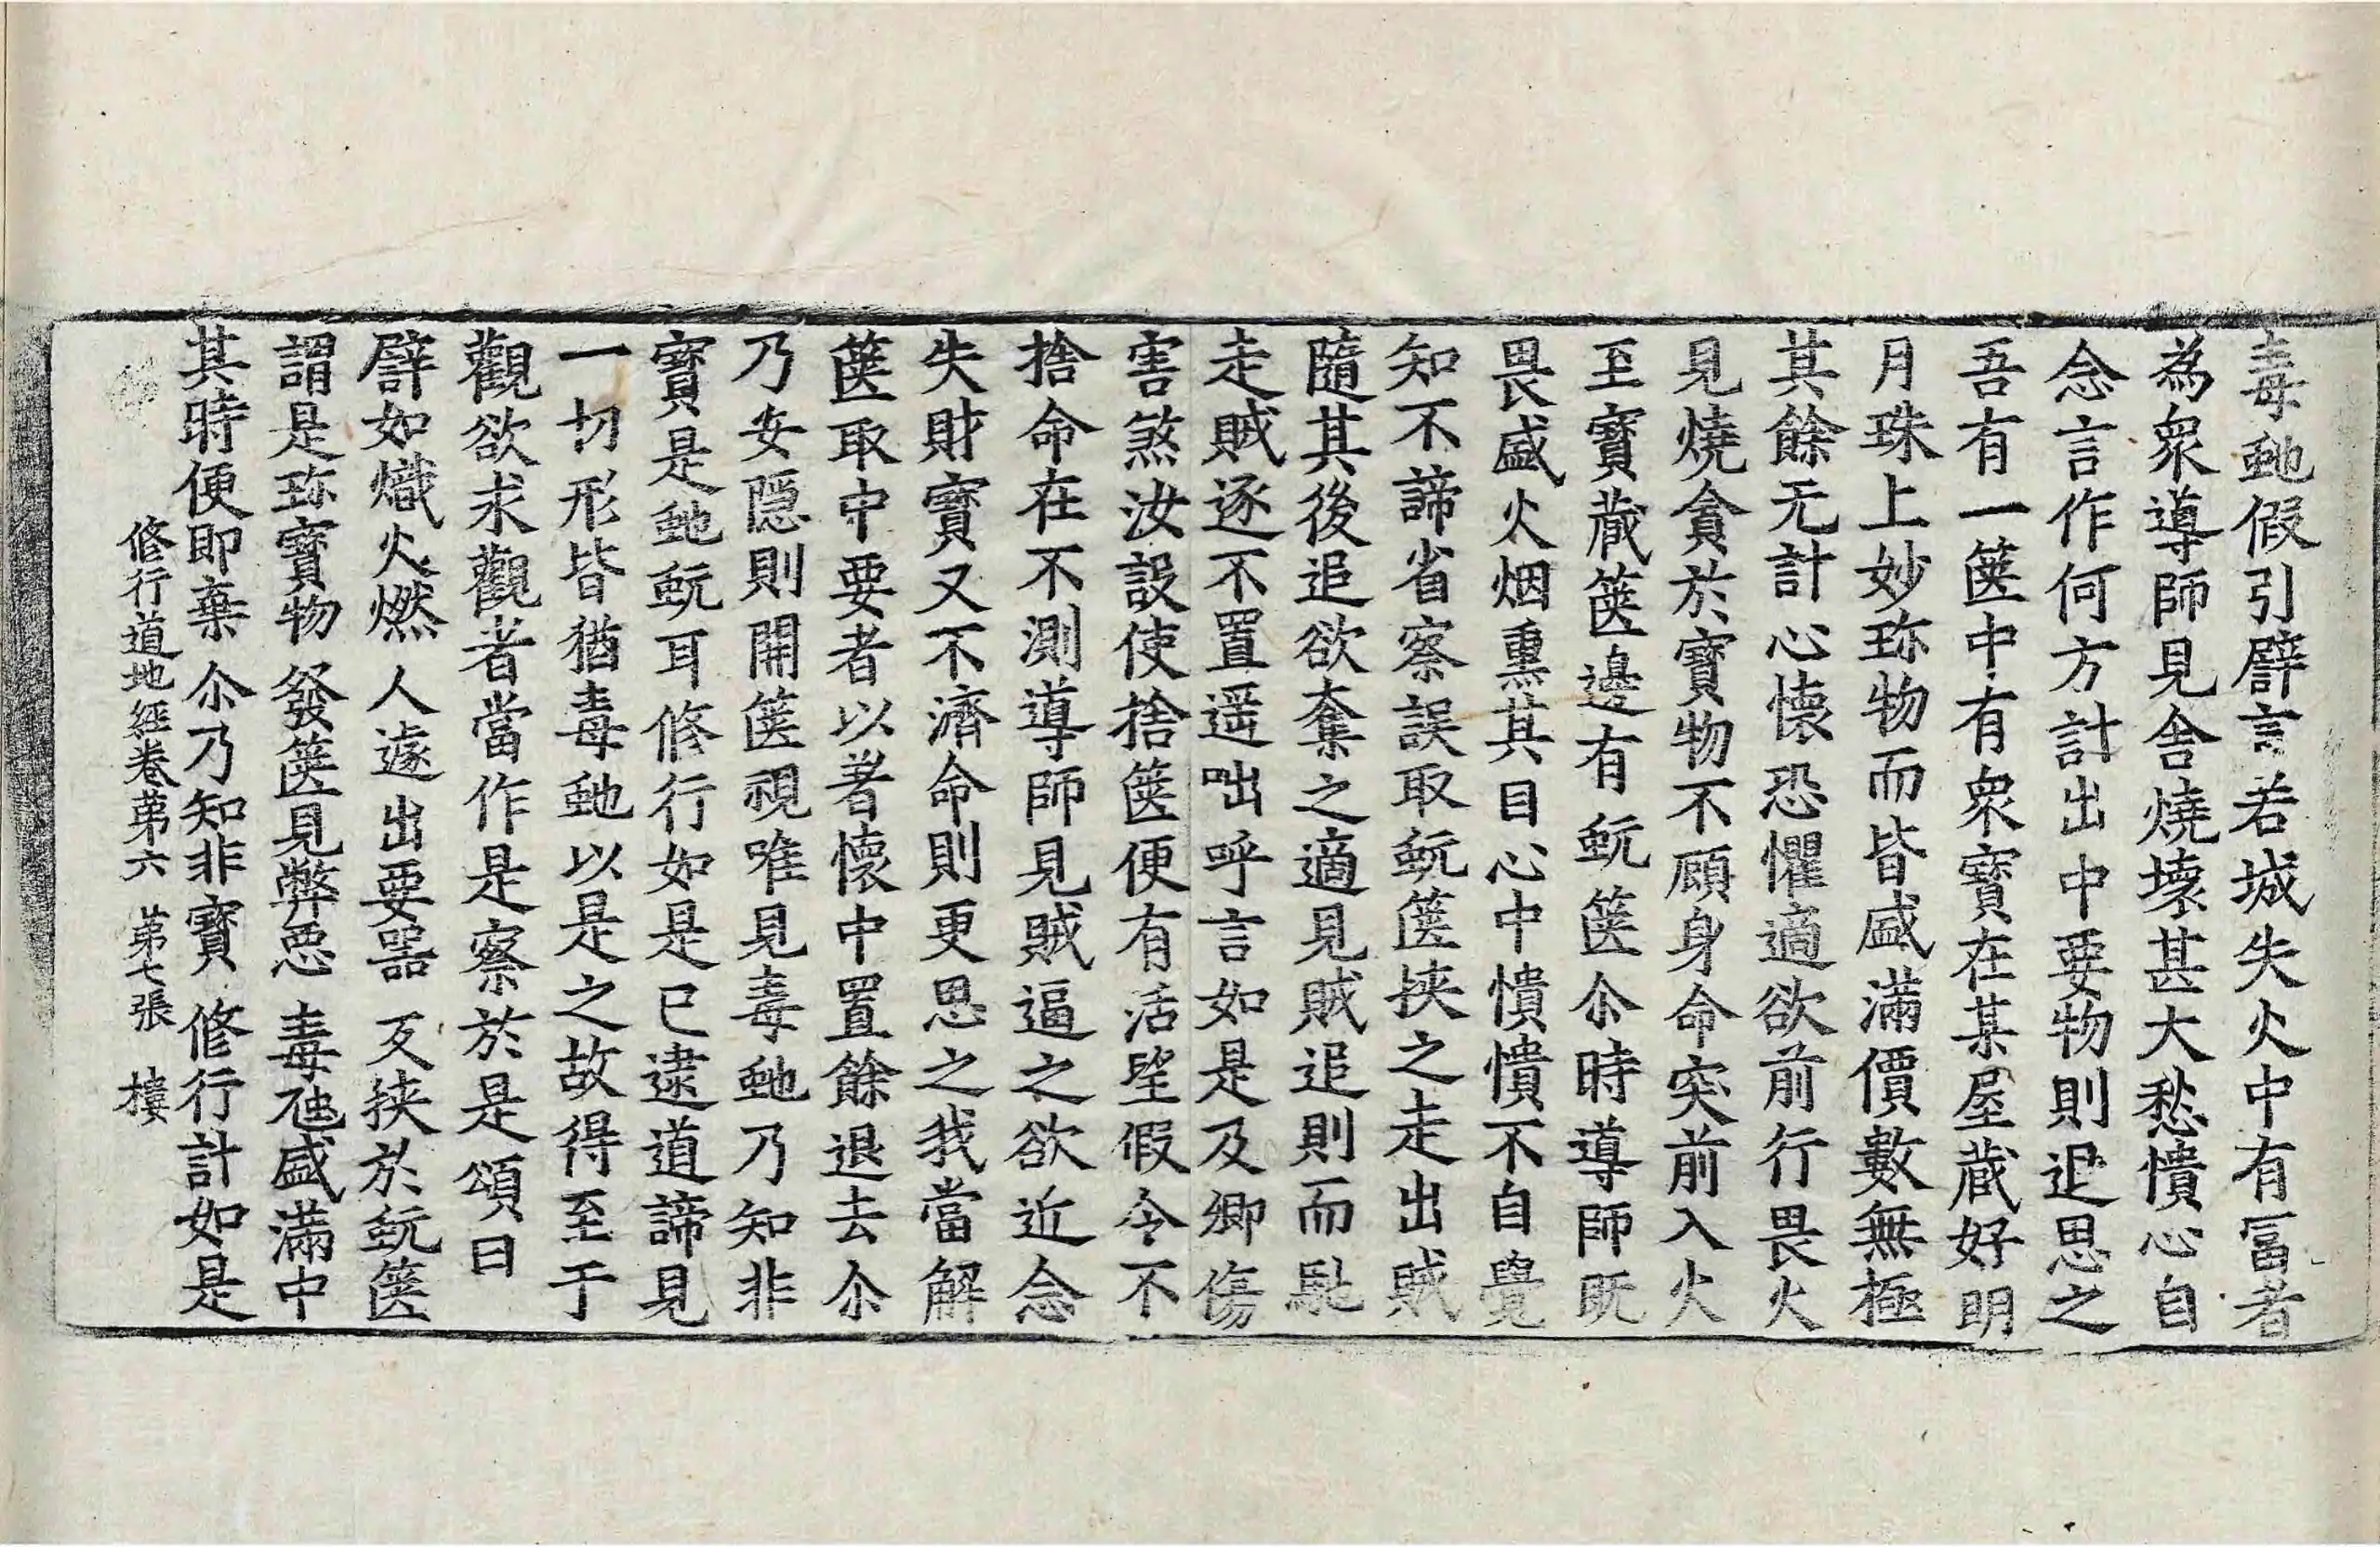 毒虵假引譬言若城失火中有冨者
為衆導師見舍燒壞甚大愁憒心自
念言作何方計出中要物則退思之
吾有一篋中有衆寶在某屋蔵好明
月珠上妙珎物而皆盛滿價數無極
其餘无計心懷恐懼適欲前行畏火
見燒貪於寶物不顧身命突前入火
至寶蔵篋邊有蚖篋尒時導師旣
畏盛火烟熏其目心中憒憒不自覺
知不諦省察誤取蚖篋挾之走出賊
隨其後追欲奪之適見賊追則而馳
走賊逐不置遥咄呼言如是及卿傷
害煞汝設使捨篋便有活望假令不
捨命在不測導師見賊逼之欲近念
失財寶又不濟命則更思之我當解
篋取中要者以著懷中置餘退去尒
乃安隱則開篋視唯見毒虵乃知非
寶是虵蚖耳修行如是已逮道諦見
一切形皆猶毒虵以是之故得至于
觀欲求觀者當作是察於是頌曰
譬如熾火燃　人遽出要器　及挾於蚖篋
謂是珎寶物　發篋見弊惡　毒虵盛滿中
其時便即棄　尒乃知非寶　修行計如是
修行道地經卷第六　第七張　樓